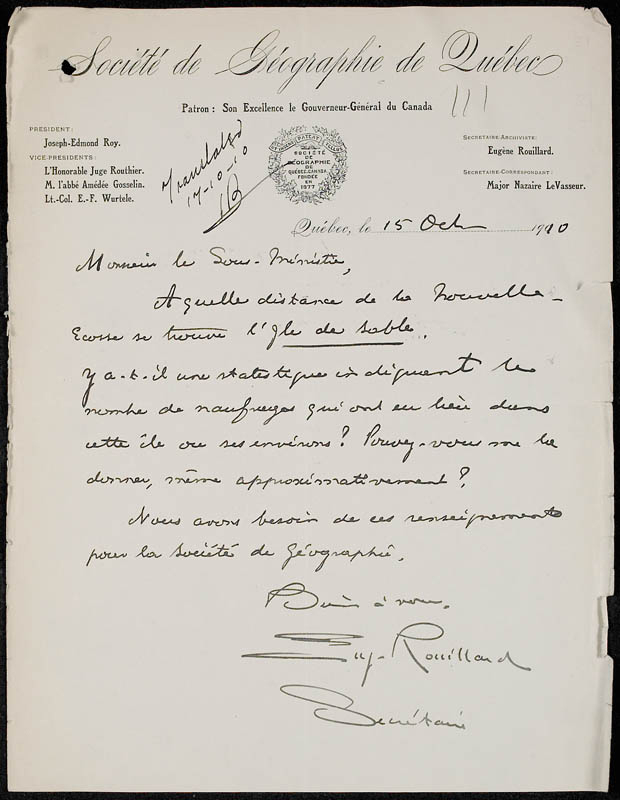 Société de Géographie de Québec
Patron : Son Excellence le Gouverneur-Général du Canada
111
PRESIDENT:
Joseph-Edmond Roy.
VICE-PRESIDENTS:
L'Honorable Juge Routhier.
M. l'abbé Amédée Gosselin.
Lt.-Col. E.-F. Wurtele.
Translated
17-10-10
SOCIÉTÉ
DE
GÉOGRAPHIE
DE
QUÉBEC, CANADA
FONDÉE
EN
1877
SECRETAIRE-ARCHIVISTE:
Eugène Rouillard.
SECRETAIRE-CORRESPONDANT:
Major Nazaire LeVasseur.
Québec, le 15 Oct 1910
Monsieur le Sous-Ministre,
A quelle distance de la Nouvelle-
Ecosse se trouve l'Ile de Sable.
Y a-t-il une statistique indiquant le
nombre de naufrages qui ont eu lieu dans
cette île ou ses environs? Pouvez-vous me la
donner, même approximativement?
Nous avons besoin de ces renseignements
pour la Société de Géographie.
Bien à vous,
Eug. Rouillard
Secrétaire